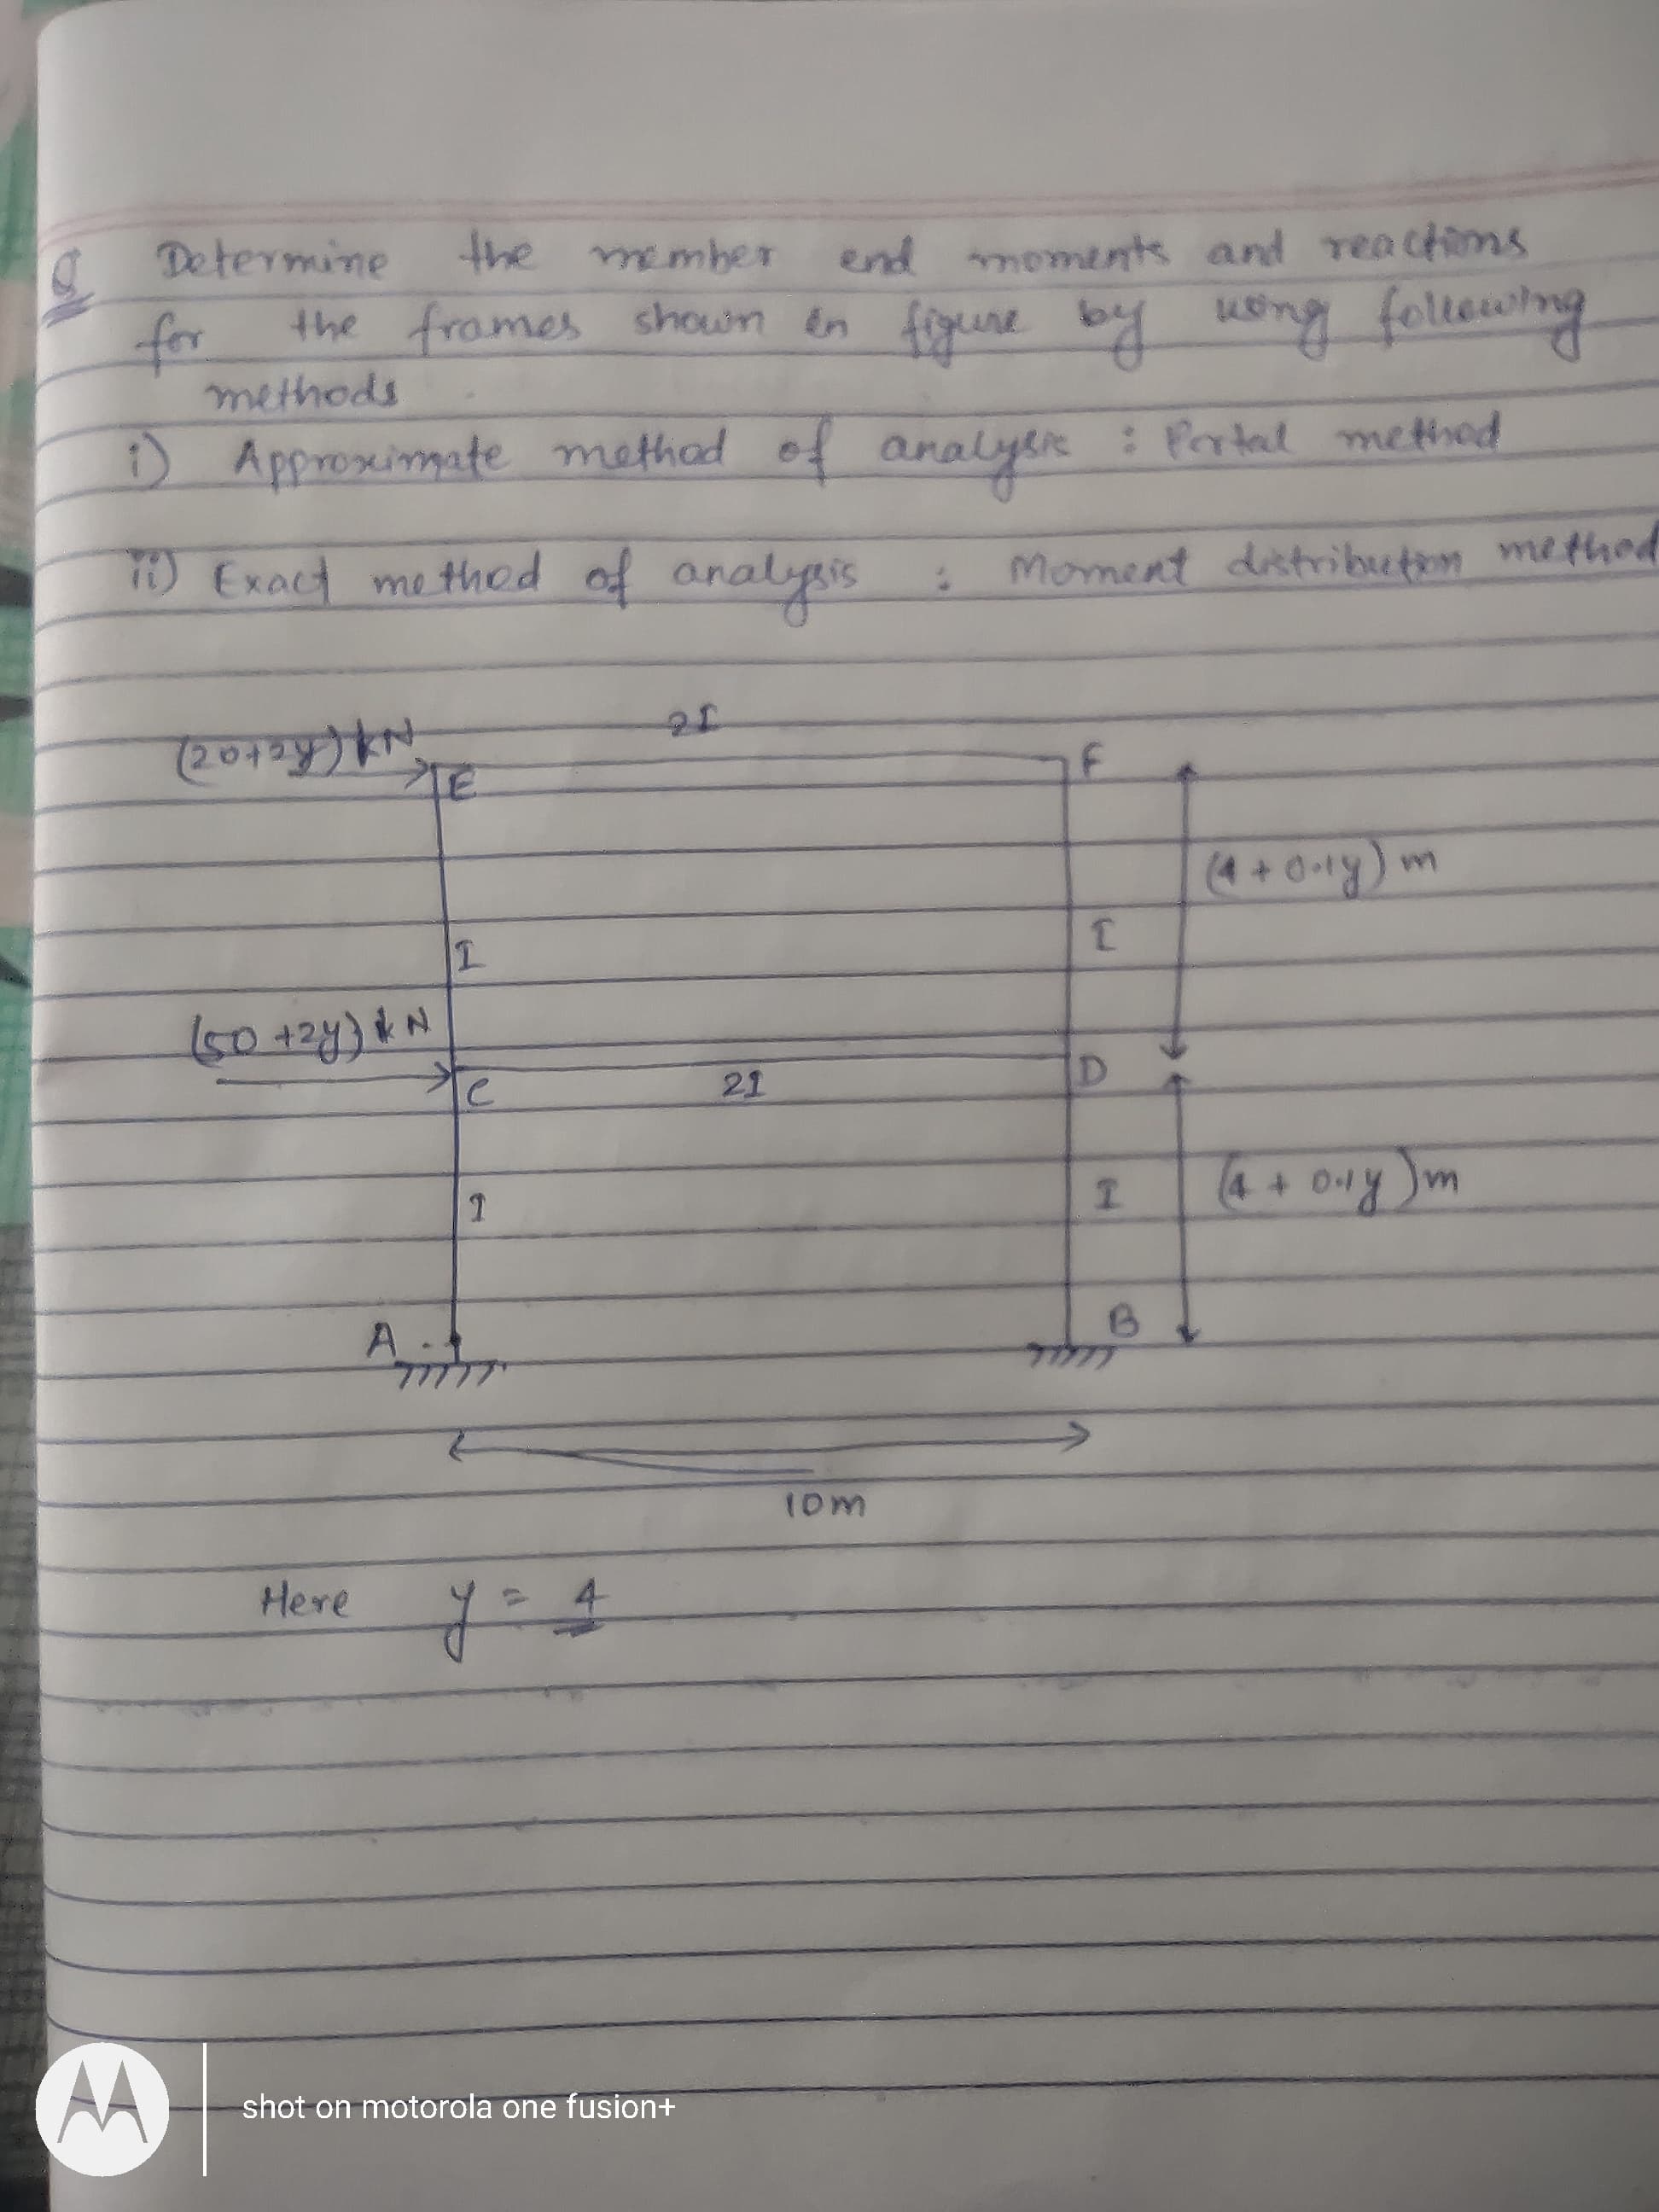 Q Determine the member end moments and reactions
for the frames shown in figure by using following
methods
i) Approximate method of analysis : Portal method
ii) Exact method of analysis : Moment distribution method
2I
(20+2y) kN
E
F
(4 + 0.1y) m
I
I
(50 +2y) kN
C
2I
D
I
I
(4 + 0.1y) m
A
B
10m
Here y = 4
shot on motorola one fusion+